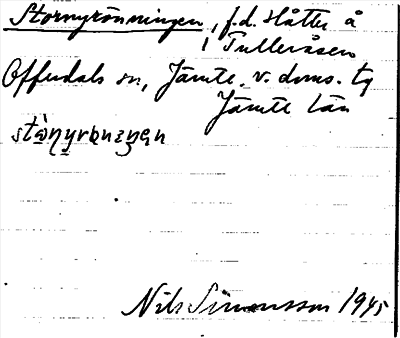 Stornyrönningen, f.d. slåtter å
i Tulleråsen
Offerdals sn, Jämtl. v. doms. tg
Jämtl län
Nils Simonsson 1945